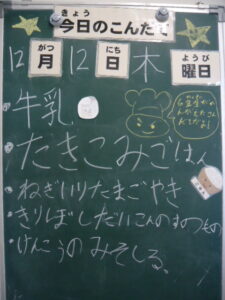 きょう
今日のこんだて
がつ にち ようび
12月12日木曜日
牛乳
たきこみごはん
ねぎいりたまごやき
きりぼしだいこんのすのつもの
けんこうのみそしる